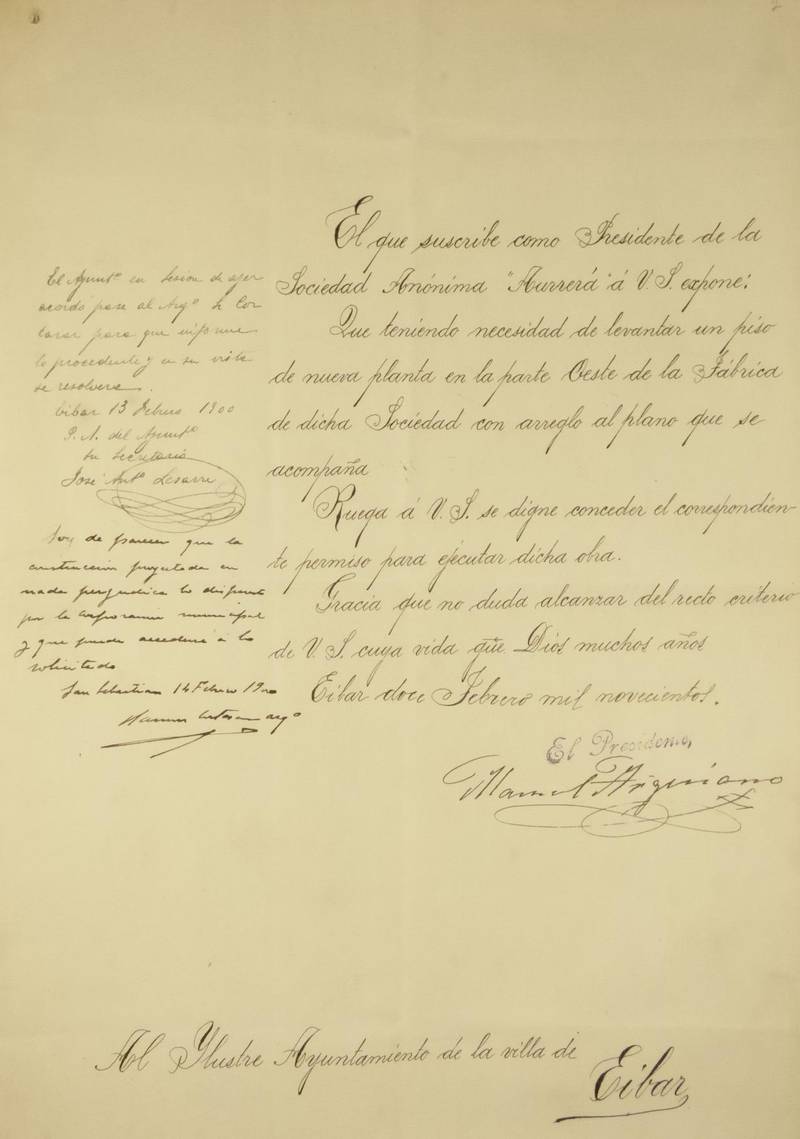 El que suscribe como Presidente de la
Sociedad Anónima "Aurrerá" á V. S. expone:
Que teniendo necesidad de levantar un piso
de nueva planta en la parte Oeste de la Fábrica
de dicha Sociedad con arreglo al plano que se
acompaña
Ruega á V. S. se digne conceder el correspondien-
te permiso para ejecutar dicha obra.
Gracia que no duda alcanzar del recto criterio
de V. S. cuya vida gûe Dios muchos años
Eibar doce Febrero mil novecientos.
El Presidente,
Manuel
El Ayuntº en sesion de ayer
acordó pase al Arqº
para que informe
lo procedente y en su vista
se resolvera.
Eibar 13 Febrero 1900
P. A. del Ayuntº
su Secretario
José Antº
Soy de parecer que la
construccion proyectada en
nada perjudica lo
por la corporacion municipal
y que puede accederse á lo
solicitado
San Sebastian 14 Febrero 1900
Ramon arqº
Al Ylustre Ayuntamiento de la villa de
Eibar